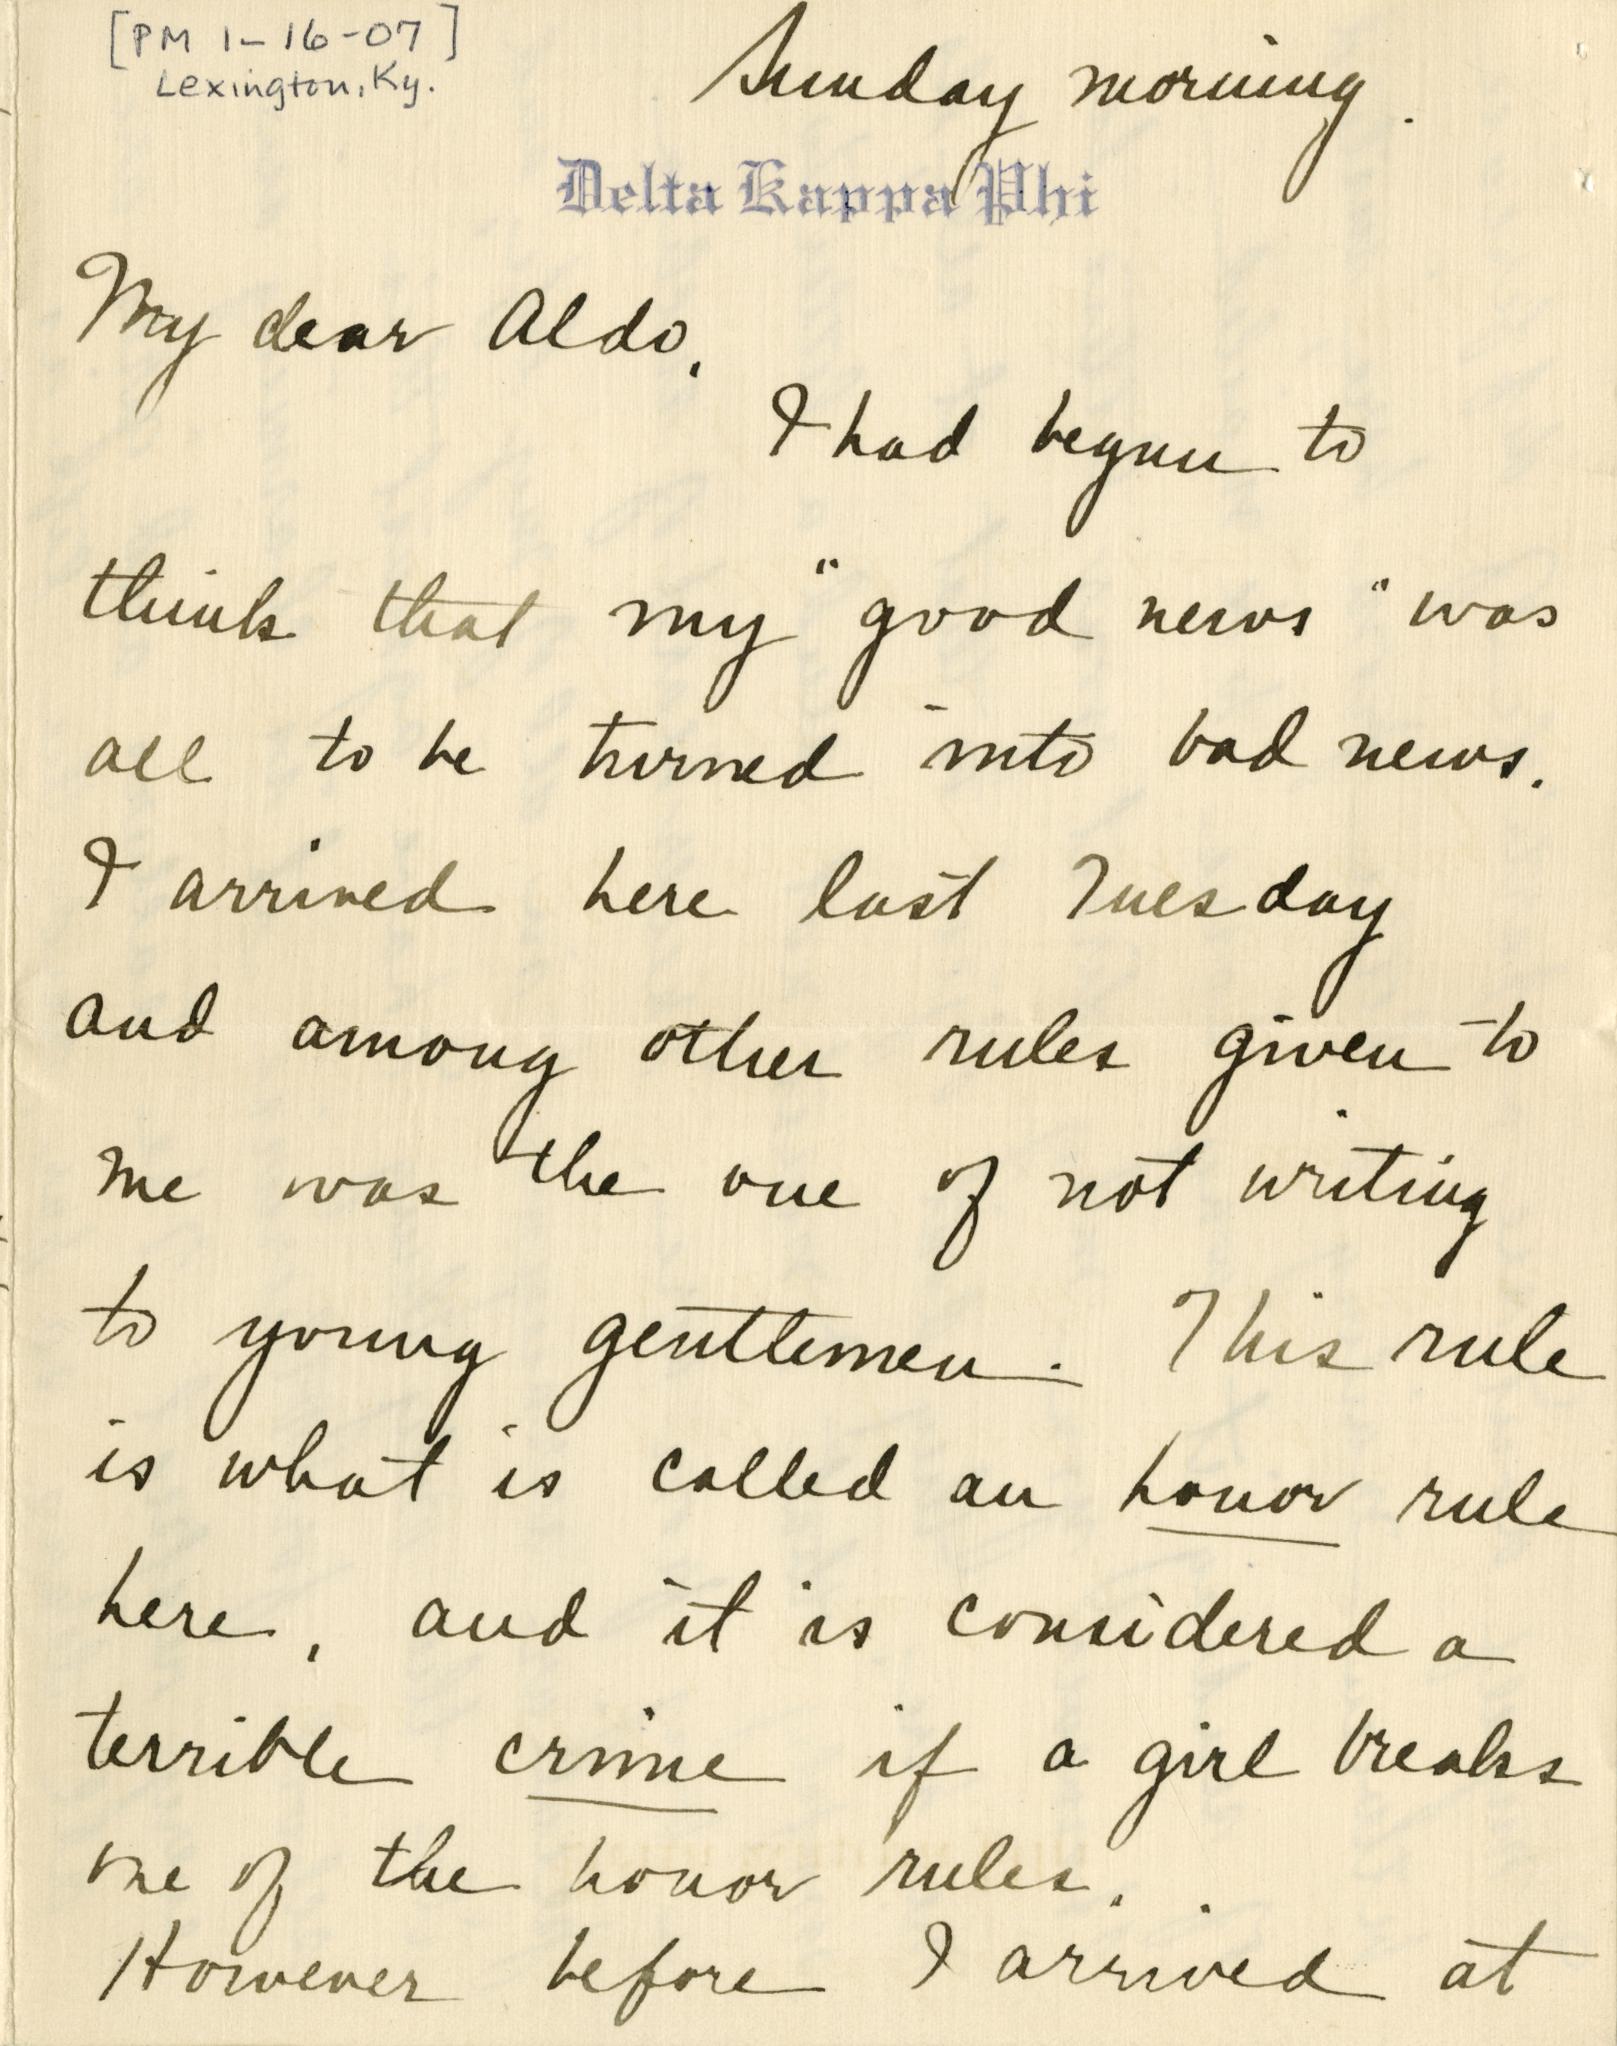 [PM 1-16-07]
Lexington, Ky.
Sunday morning.
Delta Kappa Phi
My dear Aldo,
I had begun to
think that my "good news" was
all to be turned into bad news.
I arrived here last Tuesday
and among other rules given to
me was the one of not writing
to young gentlemen. This rule
is what is called an honor rule
here, and it is considered a
terrible crime if a girl breaks
one of the honor rules.
However before I arrived at